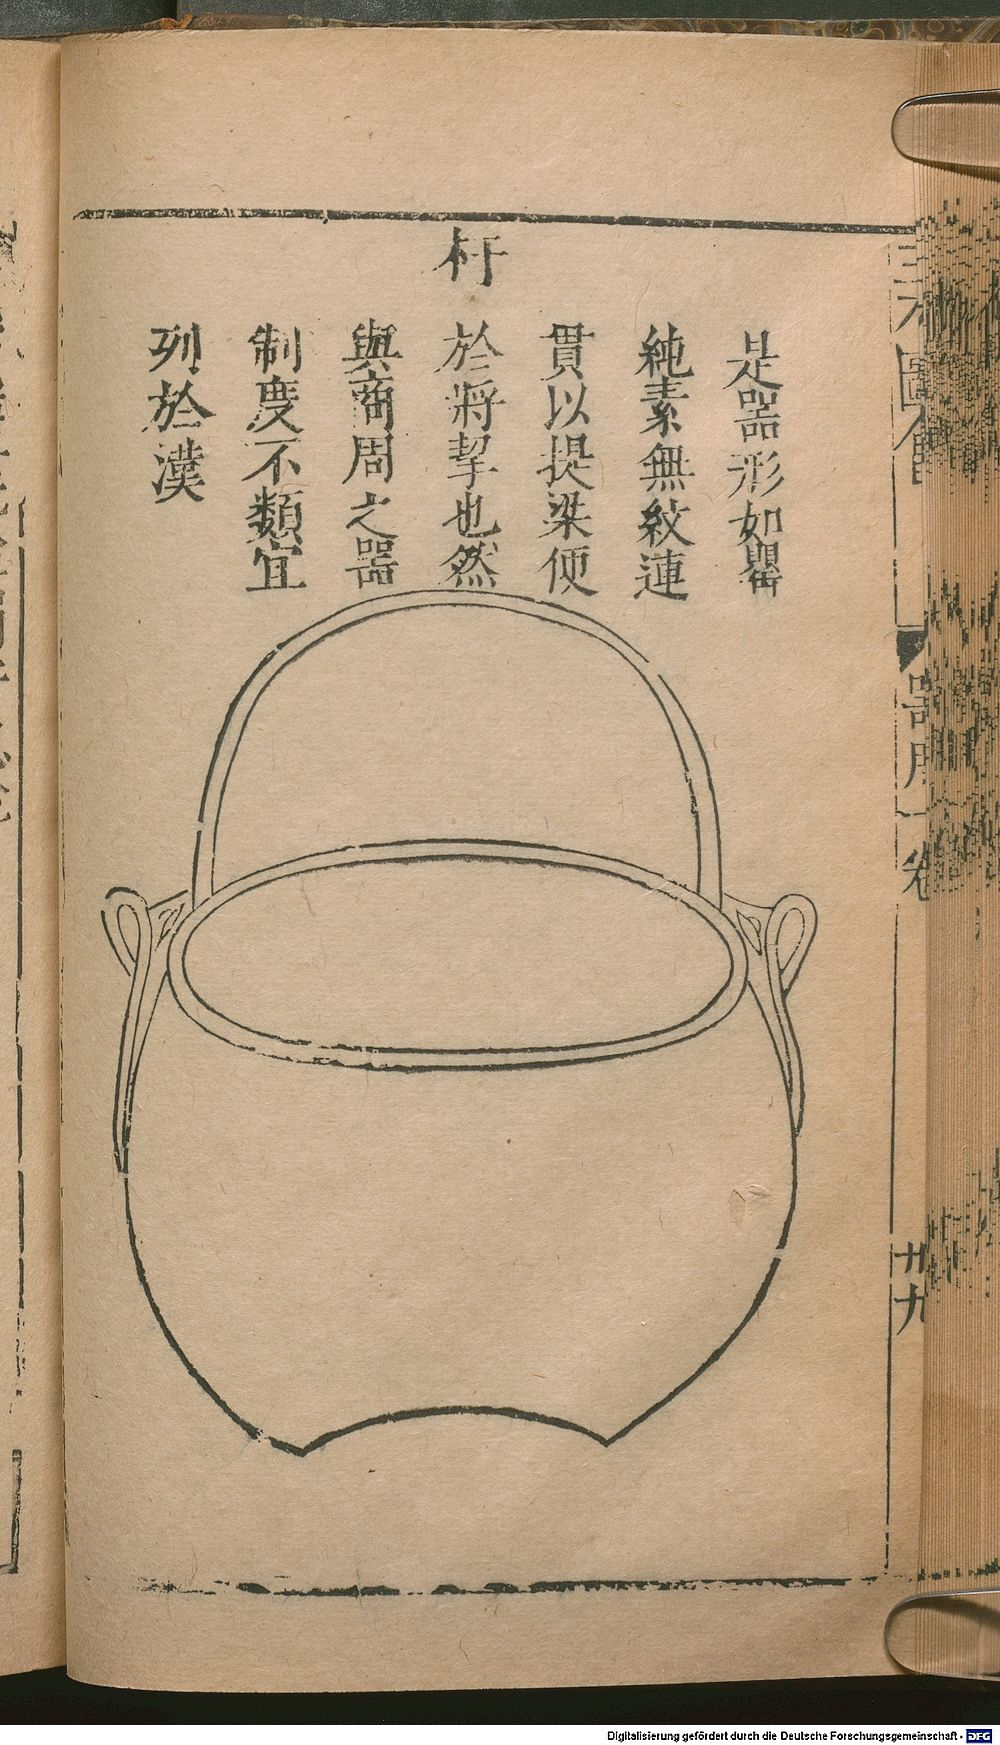 杅
是器形如罌
純素無紋連
貫以提梁便
於將挈也然
與商周之器
制度不類宜
列於漢
三才圖會
器用一卷
廿九
Digitalisierung gefördert durch die Deutsche Forschungsgemeinschaft - DFG